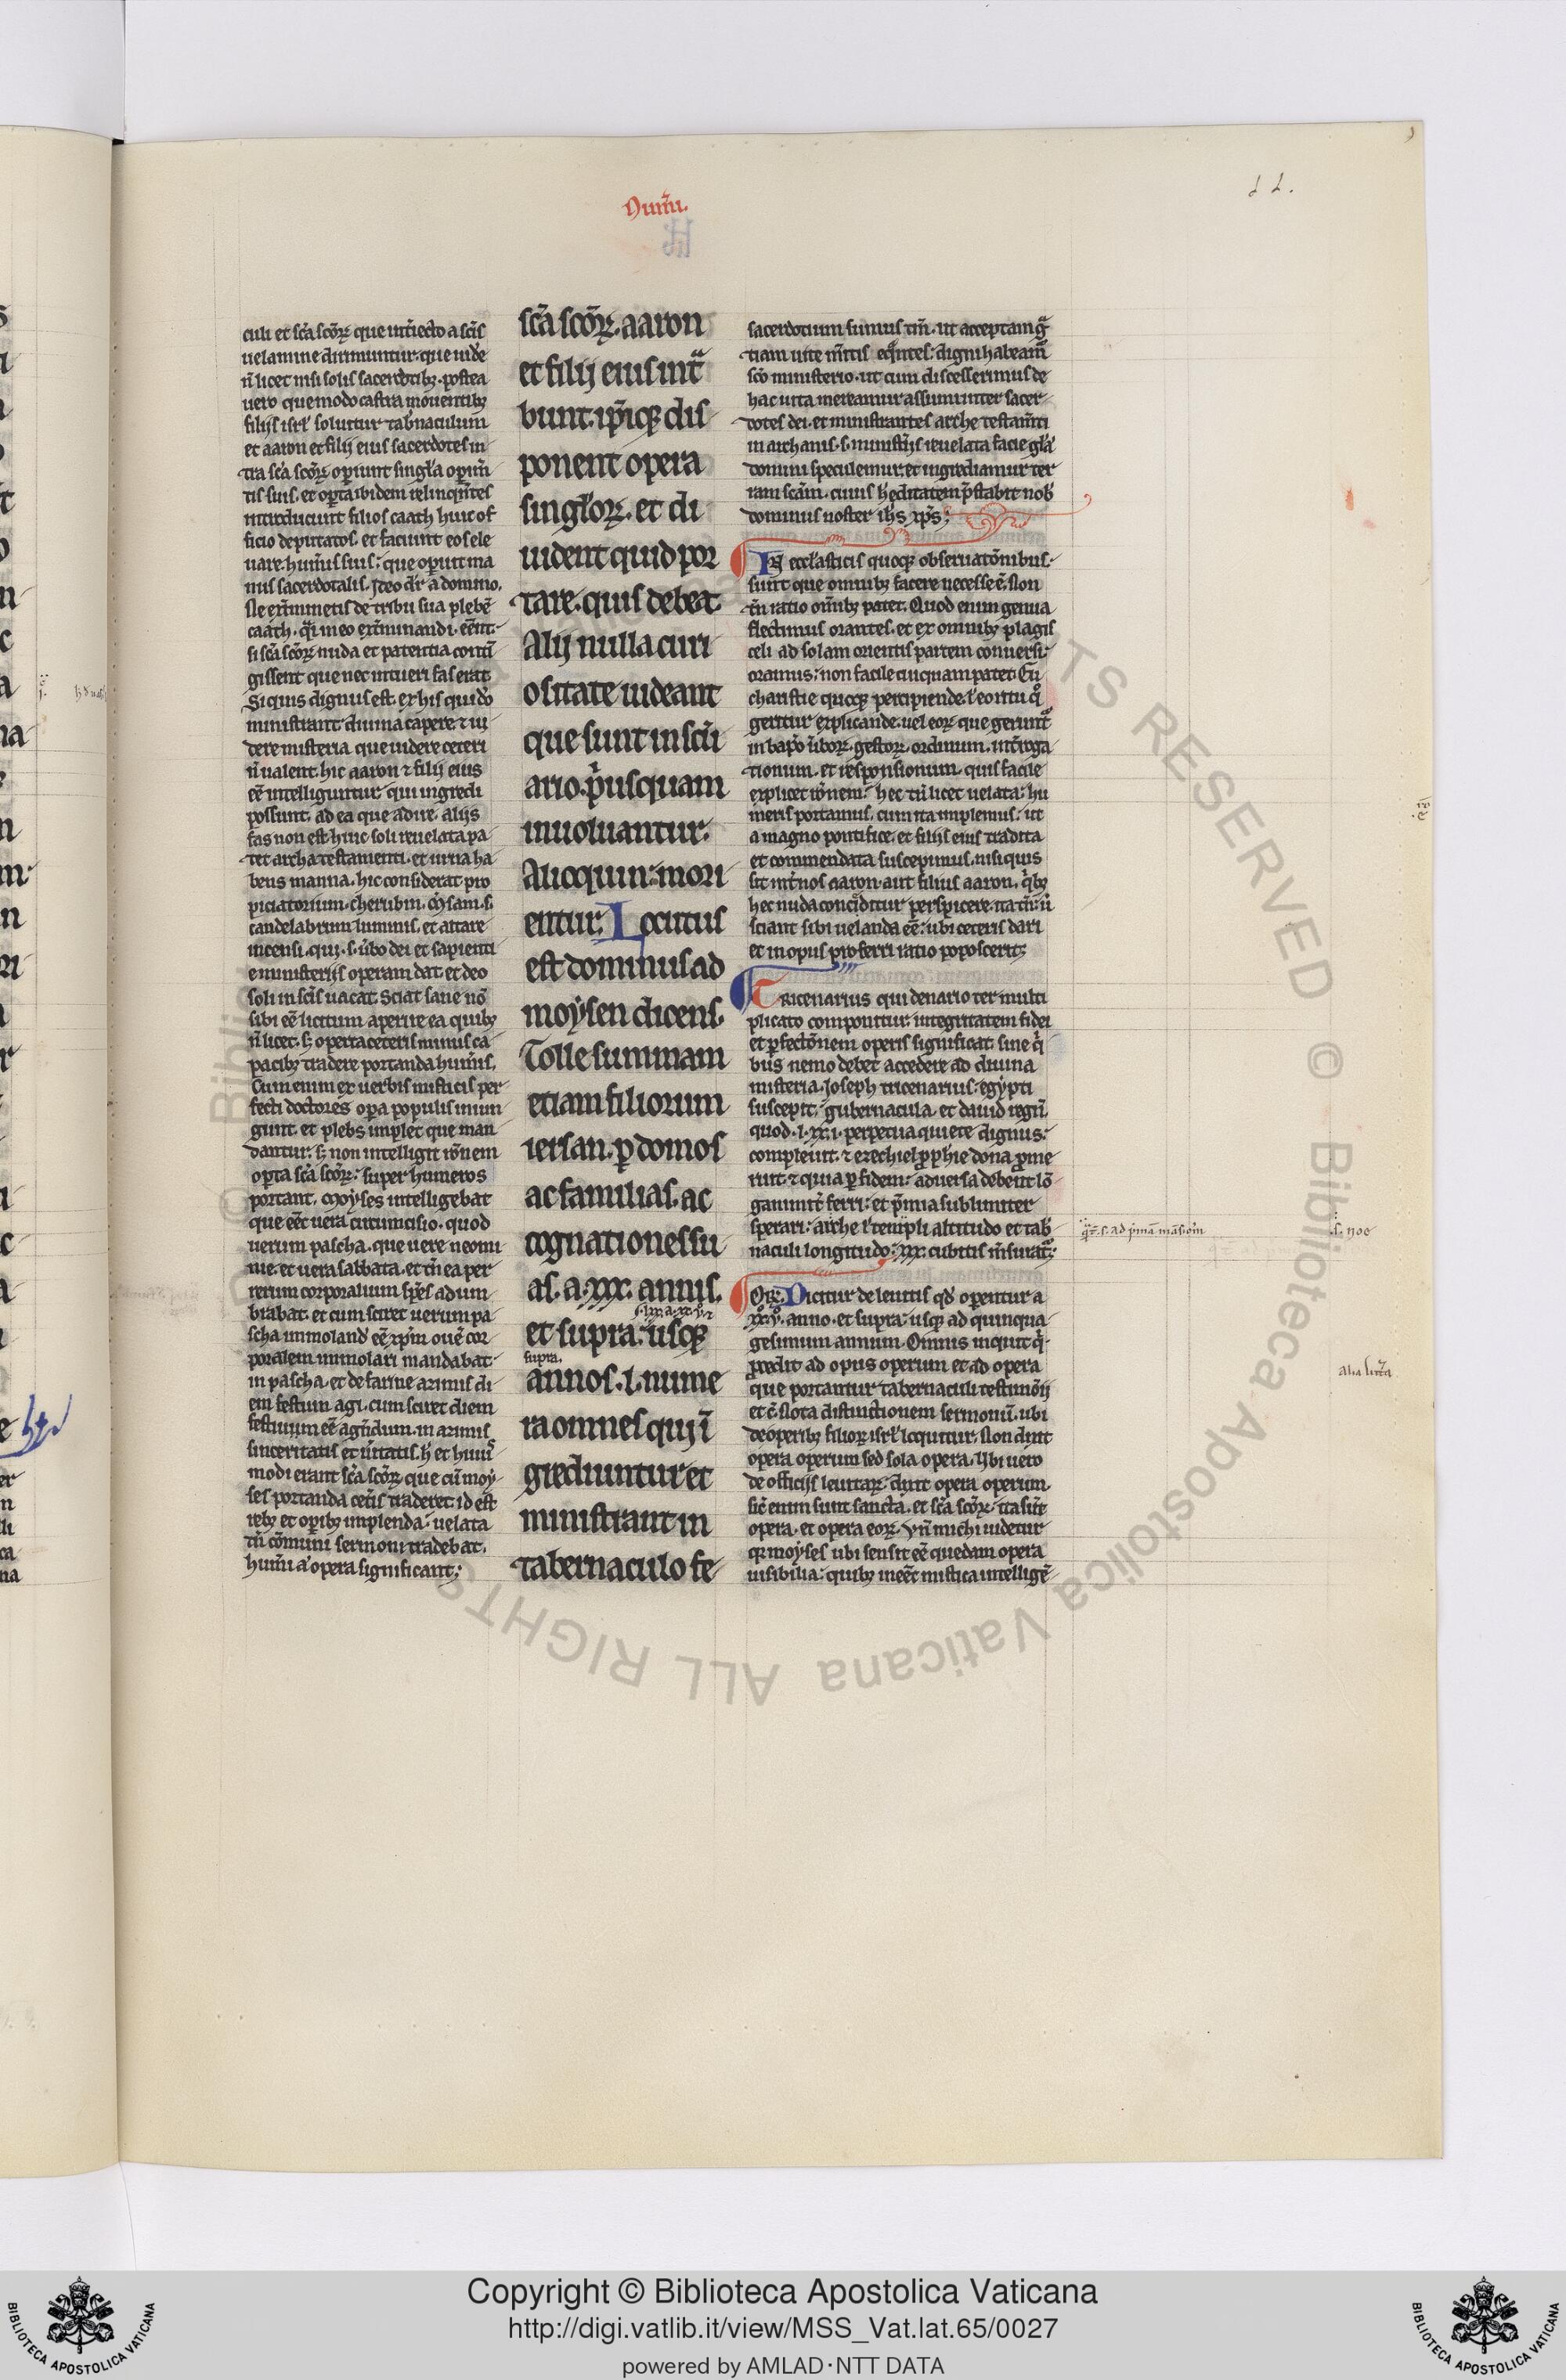 Numeri.
culi et scā scōꝝ que int̄iecto a scīs
uelamine dirimuntur. que uide
n̄ licet nisi solis sacerdotibꝫ. postea
uero quemodo castra mouentibꝫ
filijs isrl̄ soluitur tab̄naculum
et aaron et filij eius sacerdotes in
tra scā scōꝝ operiunt singl̄a operim̄
tis suis. et op̄ta ibidem relinqn̄tes
introducunt filios caath huic of
ficio deputatos. et faciunt eos ele
uare hum̄is suis: que operuit ma
nus sacerdotalis. Ideo dr̄ a domino.
Ne ext̄minetis de tribu sua plebē
caath. q̄si in eo ext̄minandi. eēnt.
si scā scōꝝ nuda et patentia conti
gissent que nec intueri fas erat
Si quis dignus est. ex his qui do
ministrant diuina capere ⁊ ui
dere misteria que uidere ceteri
n̄ ualent. hic aaron ⁊ filij eius
eē intelliguntur qui ingredi
possunt. ad ea que adire. alijs
fas non est. huic soli reuelata pa
tet archa testamenti. et urna ha
bens manna. hic considerat pro
piciatorium. cherubin. m̄sam. s.
candelabrum luminis. et altare
incensi. qui. s. ūbo dei et sapienti
e misterijs operam dat. et deo
soli in scīs uacat. Sciat sane nō
sibi eē licitum aperire ea quibꝫ
n̄ licet. s; operta ceteris minus ca
pacibꝫ tradere portanda hum̄is.
Cum enim ex uerbis misticis per
fecti doctores op̄a populis iniun
gunt. et plebs implet que man
dantur. s; non intelligit rōnem
op̄ta scā scōꝝ: super humeros
portant. Moyses intelligebat
que eēt uera circumcisio. quod
uerum pascha. que uere neomi
nie. et uera sabbata. et tn̄ ea per
rerum corporalium spēs adum
brabat. et cum sciret uerum pa
scha immoland̄ eē xp̄m ouē cor
poralem immolari mandabat
in pascha. et de farine azimis di
em festum agi. cum sciret diem
festiuum eē agn̄dum. in azimis
sinceritatis et ūitatis. h̄ et huius
modi erant scā scōꝝ que cū moy
ses portanda cet̄is traderet id est
rebꝫ et op̄ibꝫ implenda: uelata
tn̄ cōmuni sermoni tradebat.
hum̄i a᷑ opera significant:
scā scōꝝ. aaron
et filij eius int̄
bunt. ip̄iqꝫ dis
ponent opera
singl̄oꝝ. et di
uident quid por
tare. quis debeat.
Alij nulla curi
ositate uideant
que sunt in sctū
ario. p̄usquam
inuoluantur.
Alioquin: mori
entur. Locutus
est dominus ad
moysen dicens.
Tolle summam
etiam filiorum
iersan. ꝑ domos
ac familias. ac
cognationes su
as. a. xxx. annis.
et supra: usqꝫ
supra.
annos. l. nume
ra omnes qui ī
grediuntur et
ministrant in
tabernaculo fe
sacerdotium sumus tm̄. ut acceptam gr̄a
tiam uite m̄itis eq̄ntes: digni habeam̄
scō ministerio. ut cum discesserimus de
hac uita mereamur assumi inter sacer
dotes dei. et ministrantes arche testam̄ti
in archanis. s. minist̄ijs reuelata facie gl̄a
domini speculemur. et ingrediamur ter
ram scām. cuius h̄editatem p̄stabit nob̄
dominus noster ih̄s xp̄s:
In eccl̄asticis quoqꝫ obseruatōnibus.
sunt que omnibꝫ facere necesse ē. Non
tn̄ ratio om̄ibꝫ patet. Quod enim genua
flectimus orantes. et ex omnibꝫ plagis
celi ad solam orientis partem conuersi
oramus: non facile cuiquam patet. Eu
charistie quoqꝫ percipiende. l̄ eo ritu q̊
geritur explicande. uel eoꝝ que gerunt̄
in bap̄o ūboꝝ. gestoꝝ. ordinum. int̄roga
tionum. et responsionum. quis facile
explicet rōnem: hec tn̄ licet uelata: hu
meris portamus. cum ita implemus: ut
a magno pontifice. et filijs eius tradita
et commendata suscepimus. nisi quis
sit int̄ nos aaron. aut filius aaron. q̄bꝫ
hec nuda conceditur perspicere. ita tn̄: ū
sciant sibi uelanda eē: ubi ceteris dari
et in opus proferri ratio poposcerit:
Tricenarius qui denario ter multi
plicato componitur. integritatem fidei
et ꝑfectōnem operis significat. sine q̄
bus nemo debet accedere ad diuina
misteria. Ioseph tricenarius: egypti
suscepit: gubernacula. et dauid regn̄.
quod. l. xx. i. perpetua quiete dignus:
compleuit. ⁊ ezechiel ꝓphie dona ꝓme
ruit. ⁊ quia ꝑ fidem: aduersa debent lō
ganimit̄ ferri: et p̄mia sublimiter
sperari: arche l̄ templi altitudo et tab̄
naculi longitudo: xxx. cubitis m̄surat̄:
Orig. Dicitur de leuitis qd̄ operentur a
xxv. anno. et supra: usqꝫ ad quinqua
gesimum annum. Omnis inquit q̄
p̄cedit ad opus operum et ad opera
que portantur tabernaculi testimōij
etc̄. Nota distinctionem sermonū. ubi
de operibꝫ filioꝝ isrl̄ loquitur. Non dixit
opera operum sed sola opera. Vbi uero
de officijs leuitaꝝ: dixit opera operum.
sic̄ enim sunt sancta. et scā scōꝝ: ita sūt
opera. et opera eoꝝ. Vn̄ michi uidetur
qr moyses ubi sensit eē quedam opera
uisibilia: quibꝫ ineēt mistica intelligē
q̄r̄. s. ad p̄mā māsiōm̄
s. noe
alia litt̄a.
Biblioteca Apostolica Vaticana ALL RIGHTS RESERVED © Biblioteca Apostolica Vaticana ALL RIGHTS
Copyright © Biblioteca Apostolica Vaticana
http://digi.vatlib.it/view/MSS_Vat.lat.65/0027
powered by AMLAD·NTT DATA
BIBLIOTECA APOSTOLICA VATICANA
BIBLIOTECA APOSTOLICA VATICANA